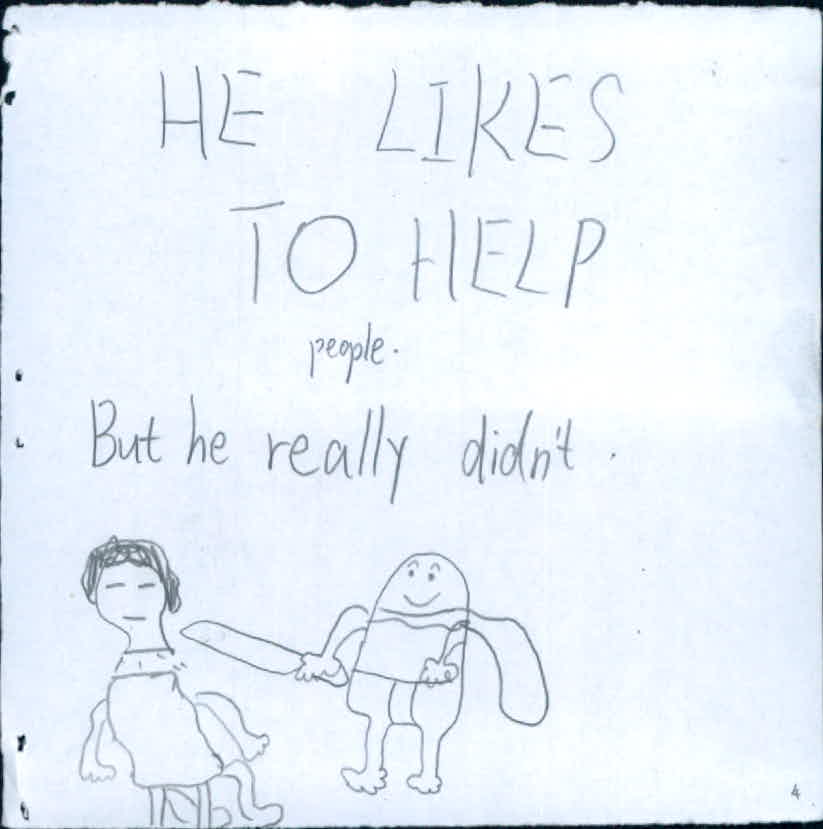 HE LIKES
TO HELP
people.
But he really didn't.
4